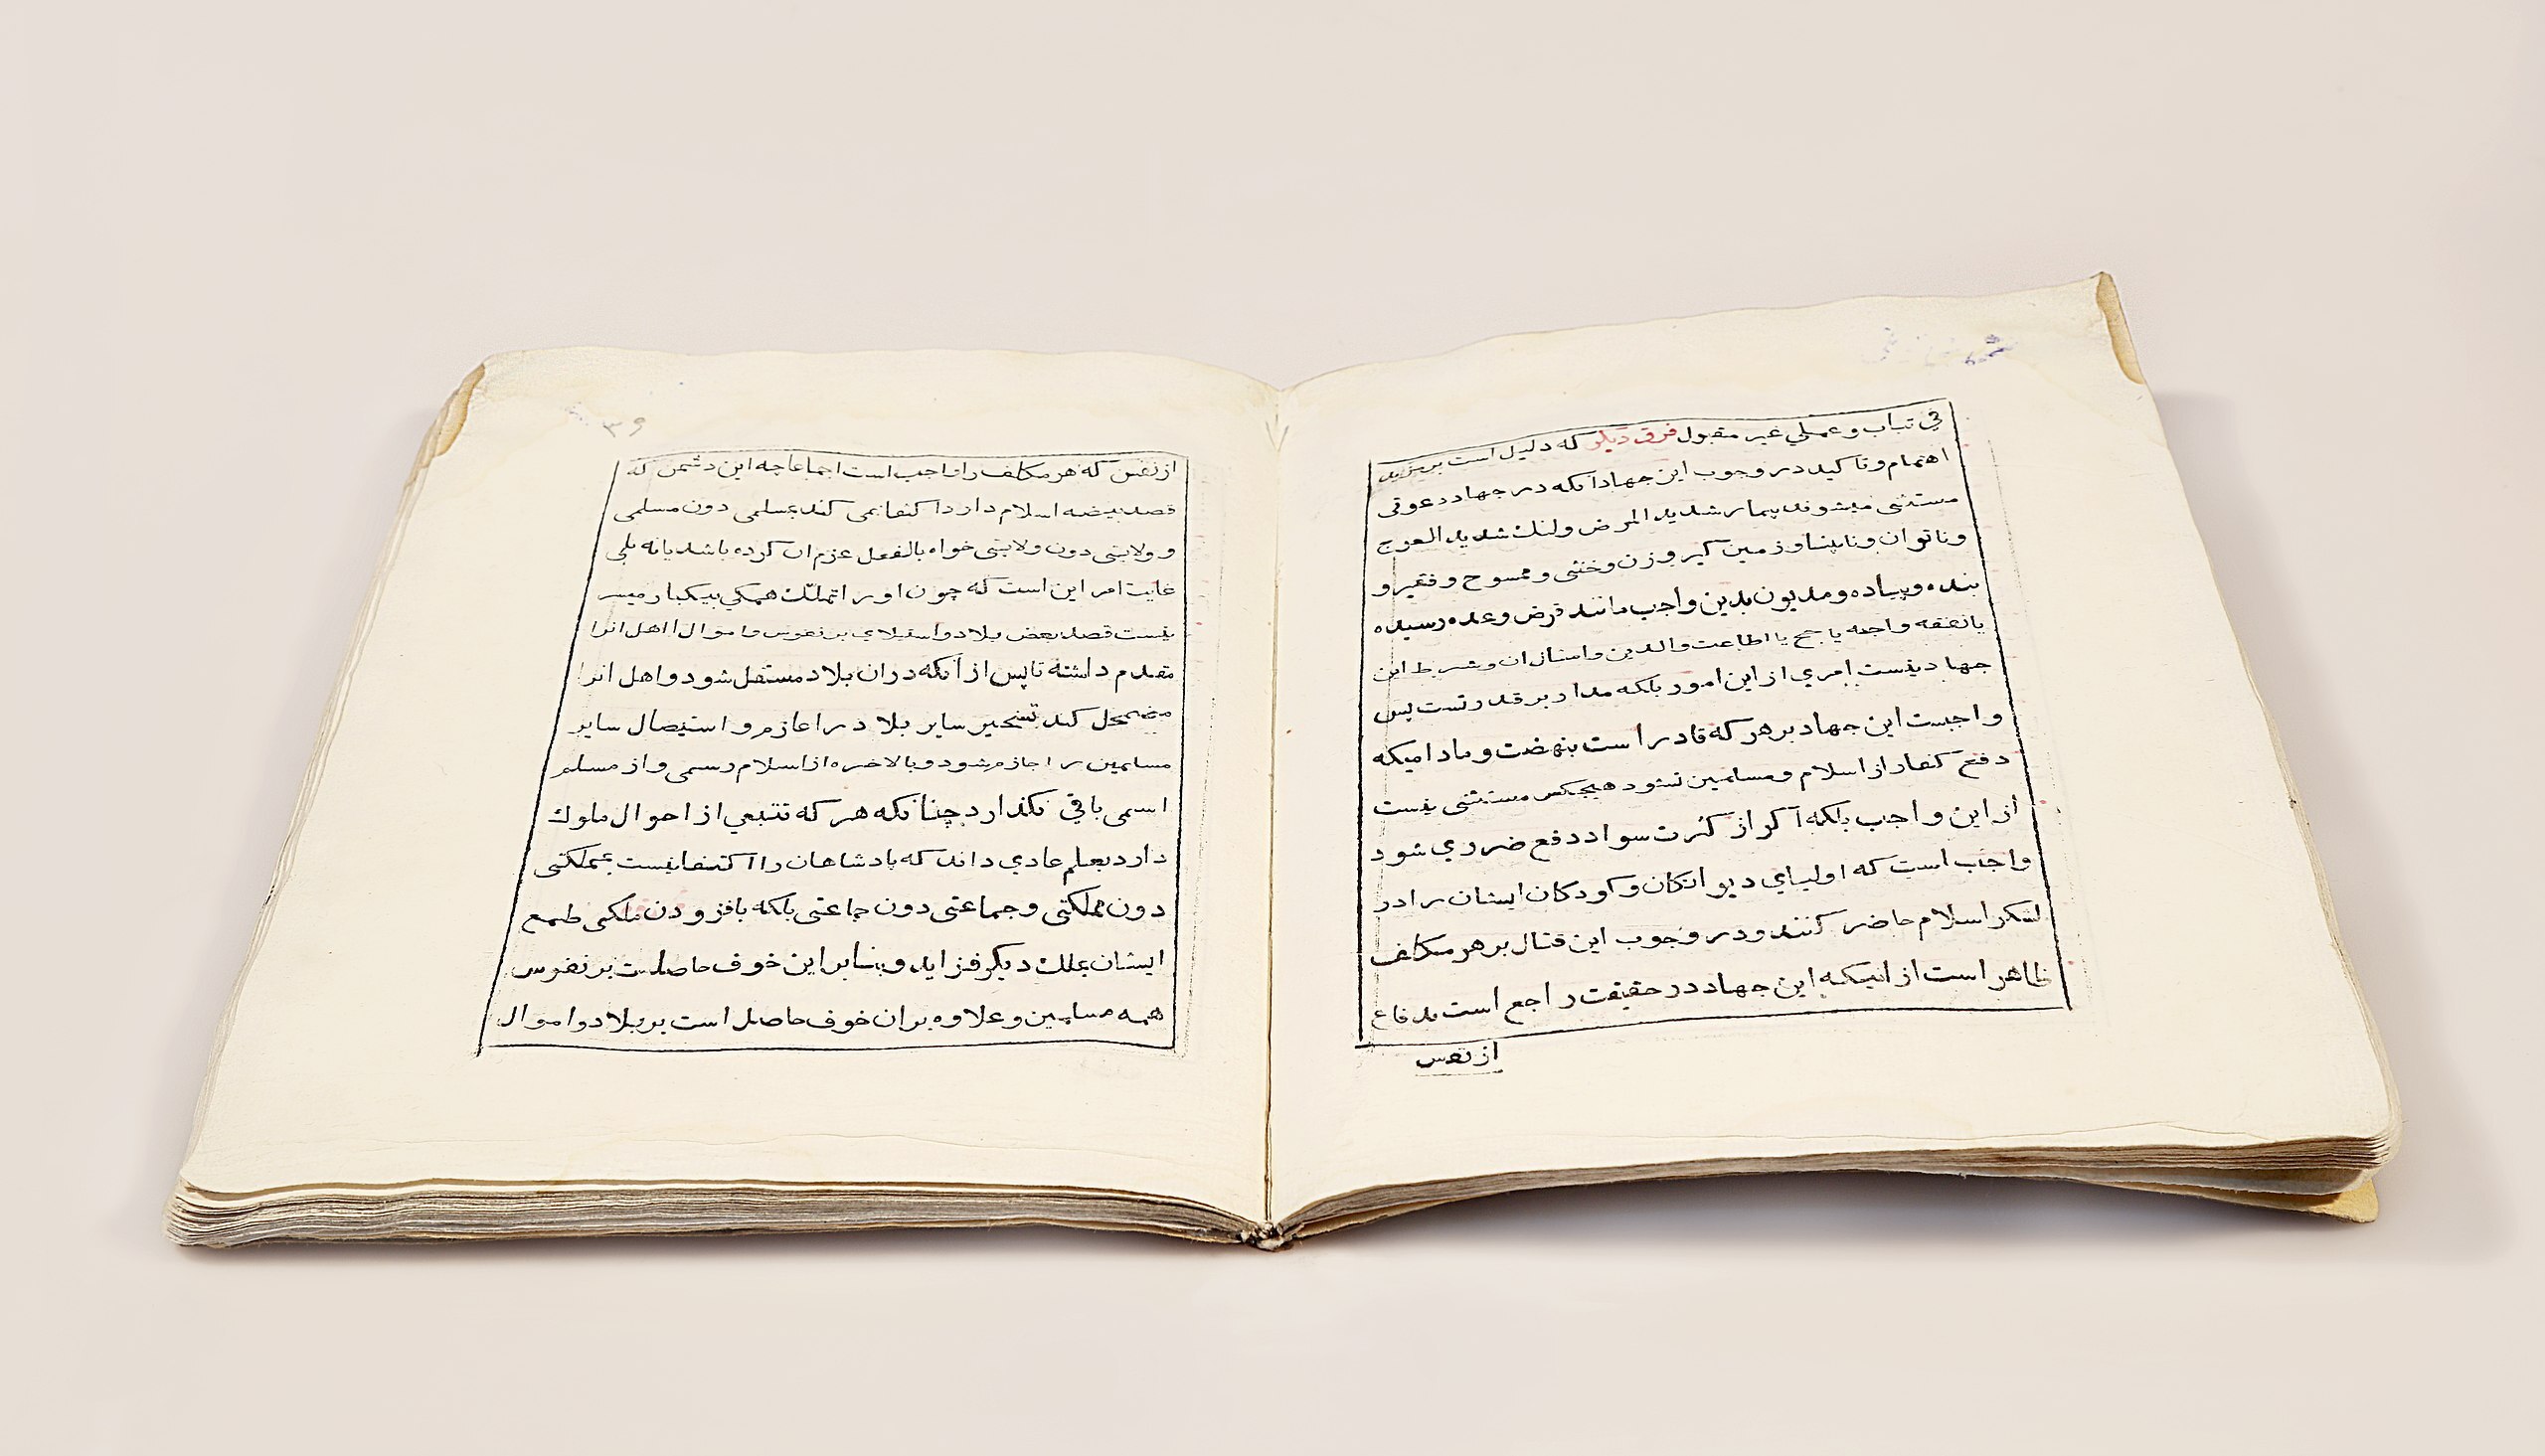 في تباب و عملي غير مقبول فرق ديگر که دليل است بر مزيد
اهتمام و تاکيد در وجوب اين جهاد آنکه در جهاد دعوتی
مستثنی ميشوند بيمار شديد المرض و لنك شديد العرج
و ناتوان و نابينا و زمين کير و زن و خنثی و ممسوح و فقير و
بنده و پياده و مديون بدين واجب مانند قرض وعده رسيده
يا نفقه واجبه يا حج يا اطاعت والدين و امثال ان و شرط اين
جهاد نيست امري از اين امور بلکه مدار بر قدرتست پس
واجبست اين جهاد بر هر که قادر است بنهضت و ماداميکه
دفع کفار از اسلام و مسلمين نشود هيچکس مستثنی نيست
از اين واجب بلکه آکر از کثرت سواد دفع ضروري شود
واجب است که اولياي ديوانکان و کودکان ايشان را در
لشکر اسلام حاضر کنند و در وجوب اين قتال بر هر مکلف
ظاهر است از اينکه اين جهاد در حقيقت راجع است بدفاع
از نفس
۳۹
از نفس که هر مکلف را واجب است اجماعا چه اين دشمن که
قصد بيضه اسلام دارد اکتفا نمی کند بمسلمی دون مسلمی
و ولايتی دون ولايتی خواه بالفعل عزم ان کرده باشد يا نه بلی
غايت امر اين است که چون او را تملك همکي بيکبار ميسر
نيست قصد بعض بلاد و استيلاي بر نفوس و اموال اهل انرا
مقدم داشته تا پس از آنکه در ان بلاد مستقل شود و اهل انرا
مضمحل کند تسخير ساير بلاد را عازم و استيصال ساير
مسلمين را جازم شود و بالاخره از اسلام رسمی و از مسلم
اسمی باقي نکذارد چنانکه هر که تتبعي از احوال ملوك
دارد بعلم عادي داند که پادشاهان را اکتفا نيست بمملکتی
دون مملکتی و جماعتی دون جماعتی بلکه بافزودن ملکی طمع
ايشان بملك ديکر فزايد و بنابر اين خوف حاصلست بر نفوس
همه مسلمين و علاوه بر ان خوف حاصل است بر بلاد و اموال